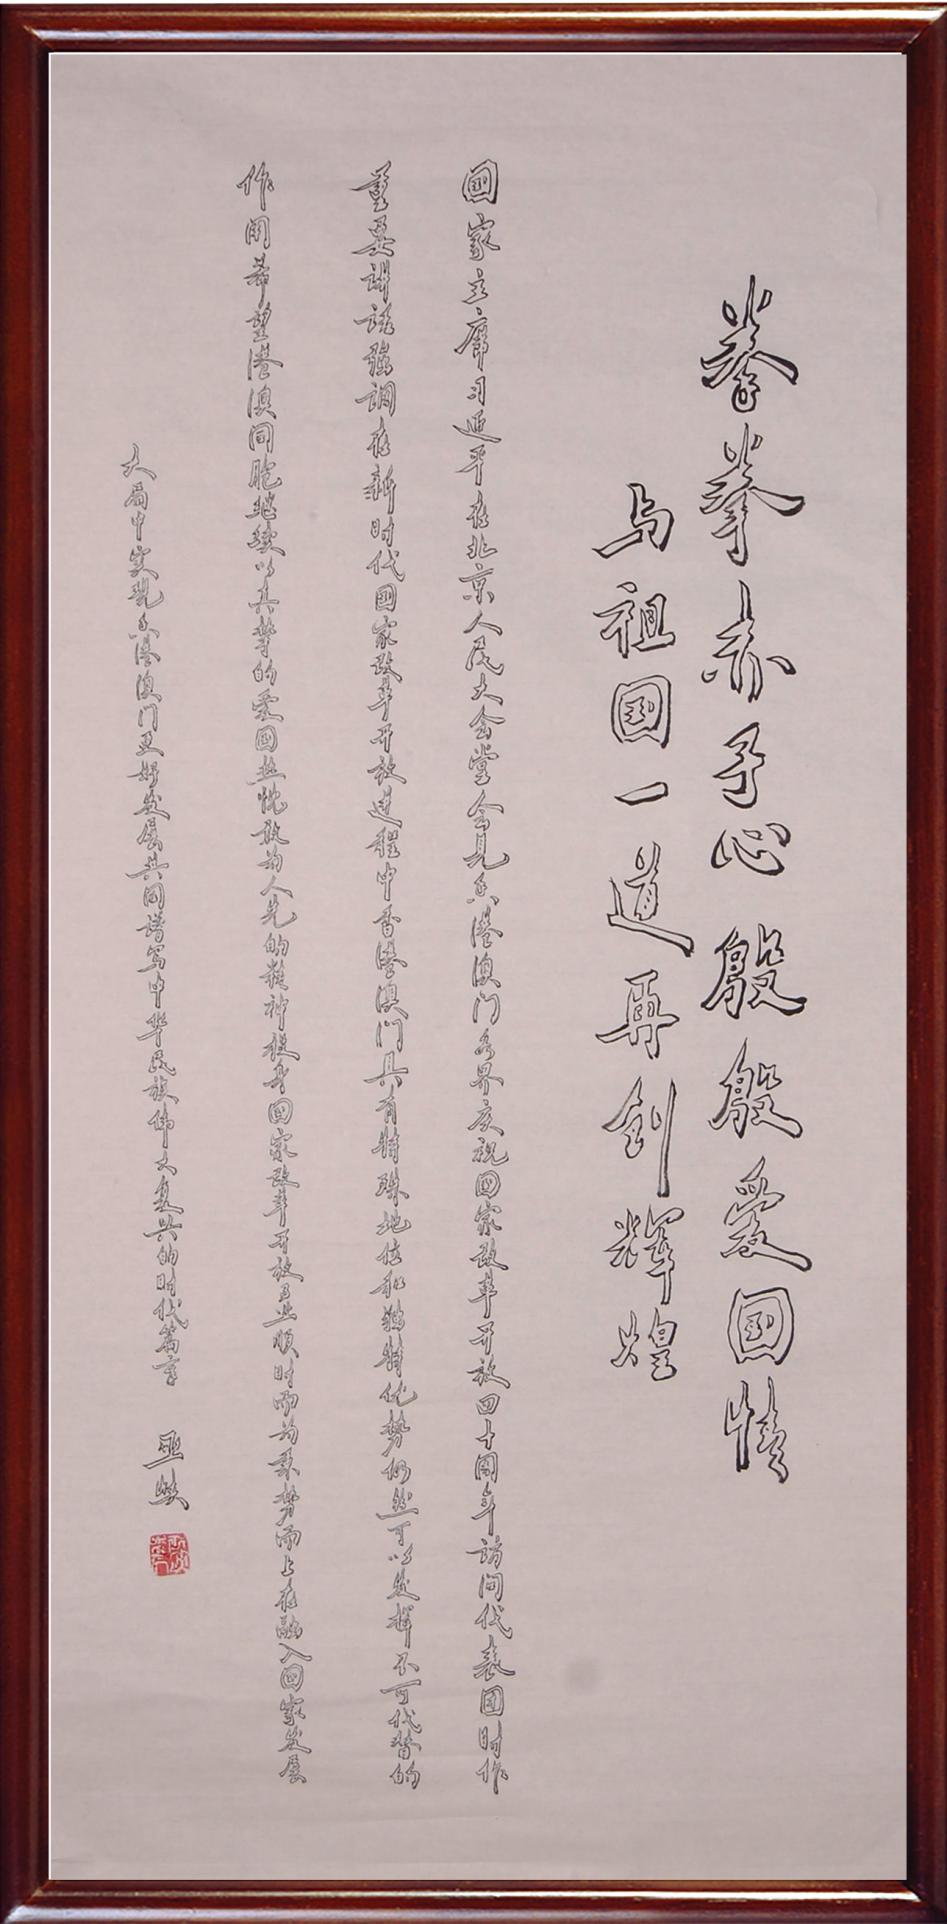 拳拳赤子心殷殷爱国情
与祖国一道再创辉煌
国家主席习近平在北京人民大会堂会见香港澳门各界庆祝国家改革开放四十周年访问代表团时作
重要讲话强调在新时代国家改革开放进程中香港澳门具有特殊地位和独特优势仍然可以发挥不可代替的
作用希望港澳同胞继续以真挚的爱国热忱敢为人先的精神投身国家改革开放事业顺时而为乘势而上在融入国家发展
大局中实现香港澳门更好发展共同谱写中华民族伟大复兴的时代篇章